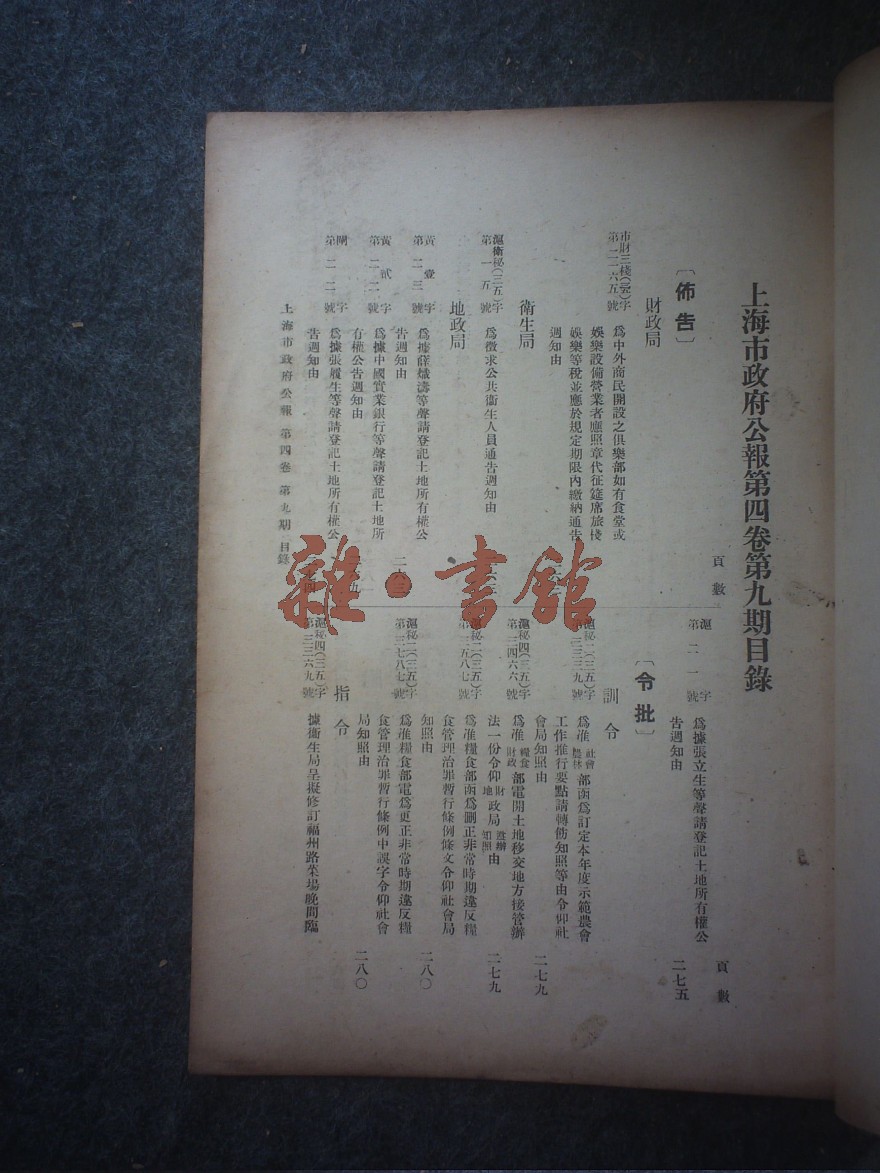 上海市政府公報第四卷第九期目錄
頁數
〔佈告〕
財政局
市財三棧(35)字
第二一六五號
為中外商民開設之俱樂部如有食堂或
娛樂設備營業者應照章代征筵席旅棧
娛樂等稅並應於規定期限內繳納通告
週知由
衛生局
滬衛秘(三五)字
第一五號
為徵求公共衛生人員通告週知由
地政局
黃壹字
第二三號
為據薛熾濤等聲請登記土地所有權公
告週知由
二六三
黃貳字
第二二號
為據中國實業銀行等聲請登記土地所
有權公告週知由
閘字
第二二號
為據張履生等聲請登記土地所有權公
告週知由
滬字
第二一號
為據張立生等聲請登記土地所有權公
告週知由
二七五
頁數
〔令批〕
訓令
滬秘二(三五)字
為准社會農林部函為訂定本年度示範農會
工作推行要點請轉飭知照等由令仰社
會局知照由
二七九
滬秘四(三五)字
第三四六六號
為准糧食財政部電開土地移交地方接管辦
法一份令仰財地政局遵辦知照由
二七九
滬秘二(三五)字
為准糧食部函為刪正非常時期違反糧
食管理治罪暫行條例條文令仰社會局
知照由
二八〇
滬秘二(三五)字
第三七八七號
為准糧食部電為更正非常時期違反糧
食管理治罪暫行條例中誤字令仰社會
局知照由
二八〇
指令
滬秘四(三五)字
第三三六九號
據衛生局呈擬修訂福州路菜場晚間臨
上海市政府公報 第四卷 第九期 目錄
雜·書館